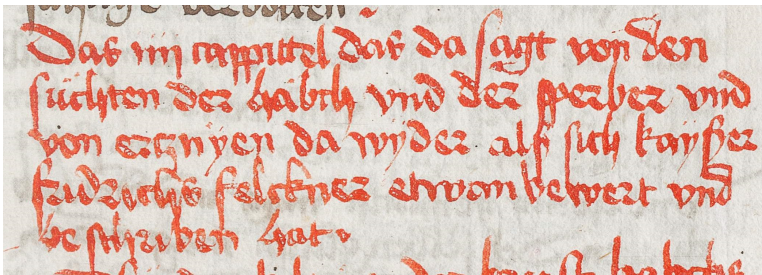 Das iiij cappittel das da sagt von den
süchten der häbch vnd der sperber vnd
von ertznyen da wyder als sich kayßer
fridrichs felckner etwan bewert vnd
beschriben hat